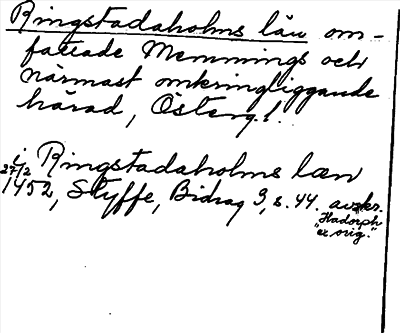 Ringstadaholms län om-
fattade Memmings och
närmast omkringliggande
härad, Östergl.
i Ringstadaholms læn
27/2
1452, Styffe, Bidrag 3, s. 44. avskr.
Hadorph
"ex orig."